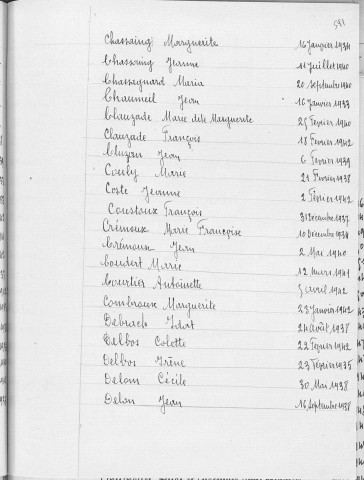 Chassaing Marguerite 16 Janvier 1934
Chassaing Jeanne 11 Juillet 1940
Chassagnard Maria 20 Septembre 1940
Chaumeil Jean 16 Janvier 1939
Clauzade Marie dite Marguerite 25 Février 1940
Clauzade François 18 Février 1942
Cluzan Jean 6 Février 1939
Couly Marie 21 Février 1938
Coste Jeanne 2 Février 1942
Coustoux François 31 Décembre 1937
Crémoux Marie Françoise 10 Décembre 1934
Crémoux Jean 2 Mai 1940
Coudert Marie 12 Mars 1941
Courtier Antoinette 5 avril 1942
Combraux Marguerite 23 Janvier 1942
24 août 1938
Delbos Colette 22 Février 1942
Delbos Irène 23 Février 1935
Delom Cécile 30 Mai 1938
Delon Jean 16 Septembre 1938